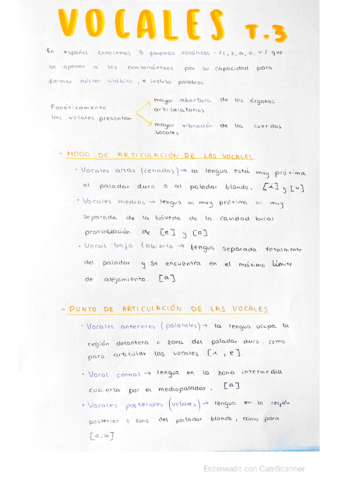 VOCALES T.3
En español conocemos 5 fonemas vocálicos - /i, e, a, o, u/ que
se oponen a los consonánticos por su capacidad para
formar núcleo silábico, e incluso palabras.
mayor abertura de los órganos
articulatorios
Fonéticamente
las vocales presentan
mayor vibración de las cuerdas
vocales
- MODO DE ARTICULACIÓN DE LAS VOCALES
· Vocales altas (cerradas) → la lengua está muy próxima
al paladar duro o al paladar blando, [i] y [u]
· Vocales medias → lengua ni muy próxima ni muy
separada de la bóveda de la cavidad bucal
pronunciación de [e] y [o]
· Vocal baja (abierta → lengua separada totalmente
del paladar y se encuentra en el máximo límite
de alejamiento. [a]
- PUNTO DE ARTICULACIÓN DE LAS VOCALES
· Vocales anteriores (palatales) → la lengua ocupa la
región delantera o zona del paladar duro, como
para articular las vocales [i, e].
· Vocal central → lengua en la zona intermedia
cubierta por el mediopaladar. [a]
· Vocales posteriores (velares) → lengua en la región
posterior o zona del paladar blando, como para
[o, u].
Escaneado con CamScanner